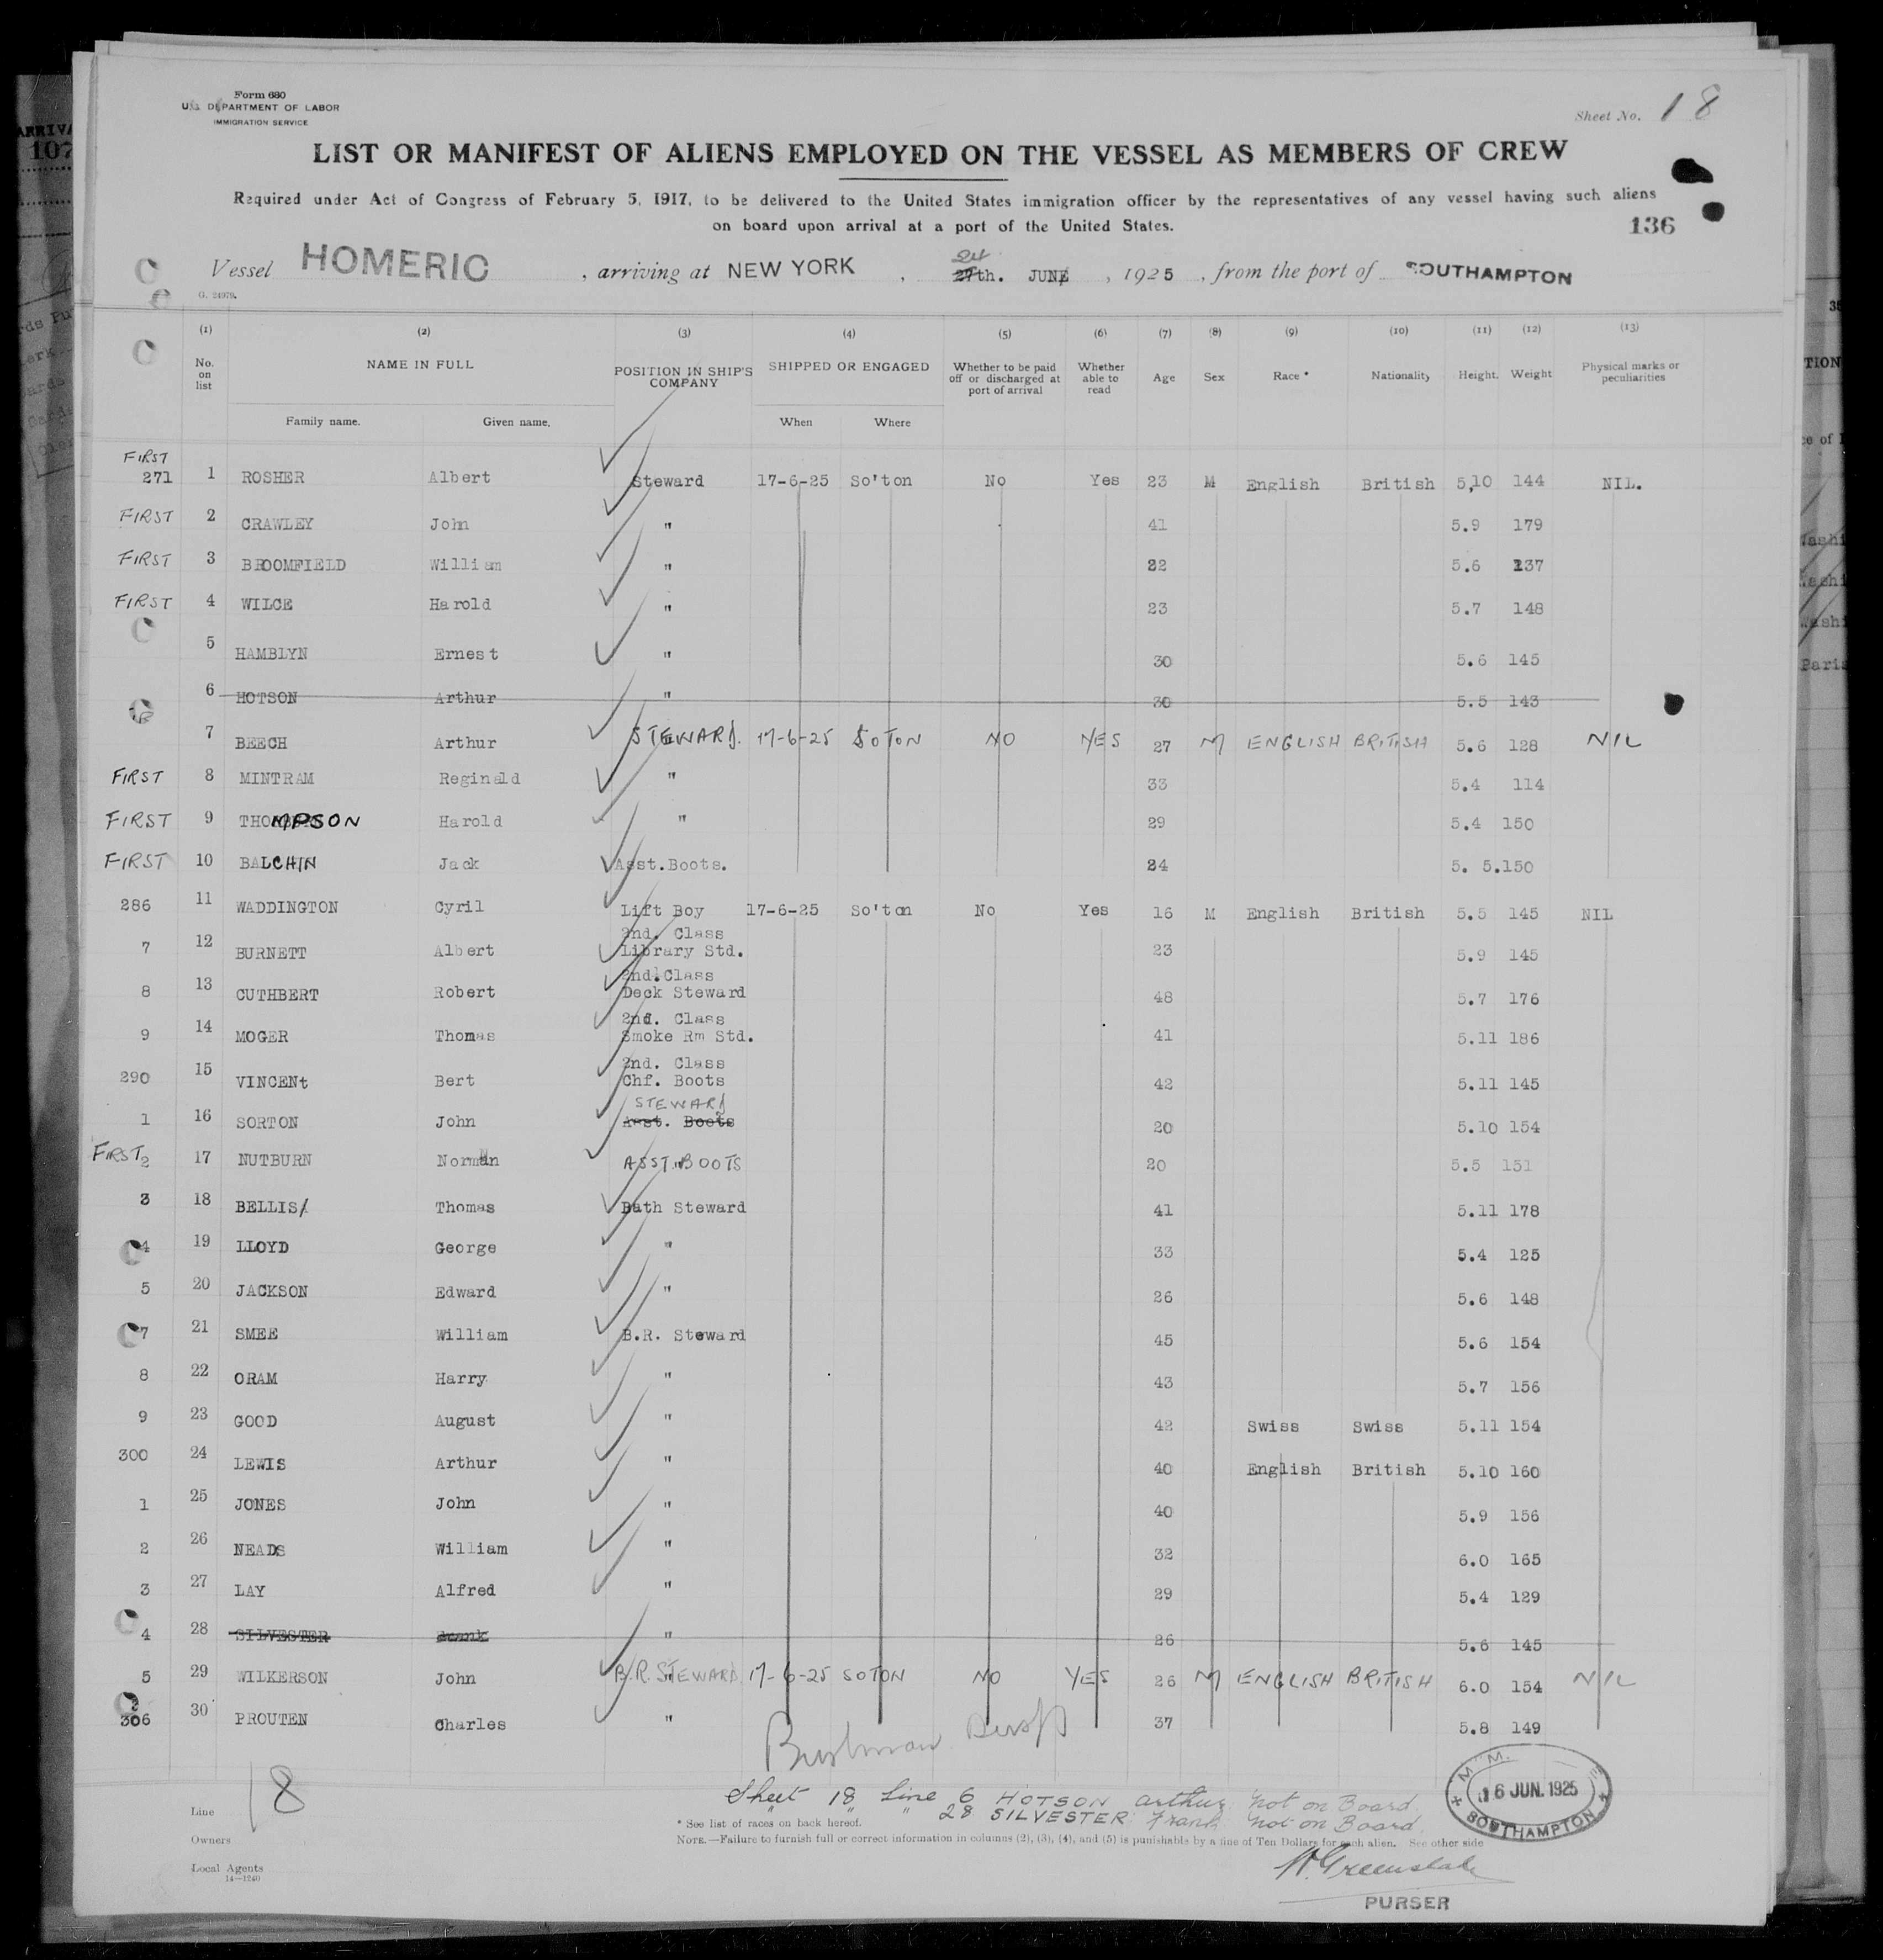 Form 680
U.S. DEPARTMENT OF LABOR
IMMIGRATION SERVICE
Sheet No. 18
LIST OR MANIFEST OF ALIENS EMPLOYED ON THE VESSEL AS MEMBERS OF CREW
Required under Act of Congress of February 5, 1917, to be delivered to the United States immigration officer by the representatives of any vessel having such aliens
on board upon arrival at a port of the United States.
136
Vessel HOMERIC , arriving at NEW YORK , 24 27th. JUNE , 1925 , from the port of SOUTHAMPTON
G. 24979.
(1) (2) (3) (4) (5) (6) (7) (8) (9) (10) (11) (12) (13)
No. on list NAME IN FULL POSITION IN SHIP'S COMPANY SHIPPED OR ENGAGED Whether to be paid off or discharged at port of arrival Whether able to read Age Sex Race * Nationality Height. Weight Physical marks or peculiarities
Family name. Given name. When Where
FIRST
271 1 ROSHER Albert Steward 17-6-25 So'ton No Yes 23 M English British 5,10 144 NIL.
FIRST 2 CRAWLEY John " 41 5.9 179
FIRST 3 BROOMFIELD William " 22 5.6 137
FIRST 4 WILCE Harold " 23 5.7 148
5 HAMBLYN Ernest " 30 5.6 145
6 HOTSON Arthur " 30 5.5 143
7 BEECH Arthur STEWARD. 17-6-25 SOTON NO YES 27 M ENGLISH BRITISH 5.6 128 NIL
FIRST 8 MINTRAM Reginald " 33 5.4 114
FIRST 9 THOMPSON Harold " 29 5.4 150
FIRST 10 BALCHIN Jack Asst.Boots. 24 5. 5.150
286 11 WADDINGTON Cyril Lift Boy 17-6-25 So'ton No Yes 16 M English British 5.5 145 NIL
2nd. Class
7 12 BURNETT Albert Library Std. 23 5.9 145
2nd.Class
8 13 CUTHBERT Robert Deck Steward 48 5.7 176
2nd. Class
9 14 MOGER Thomas Smoke Rm Std. 41 5.11 186
2nd. Class
290 15 VINCENt Bert Chf. Boots 42 5.11 145
STEWARD
1 16 SORTON John Asst. Boots 20 5.10 154
FIRST 2 17 NUTBURN Norman ASST. BOOTS 20 5.5 151
3 18 BELLIS Thomas Bath Steward 41 5.11 178
4 19 LLOYD George " 33 5.4 125
5 20 JACKSON Edward " 26 5.6 148
7 21 SMEE William B.R. Steward 45 5.6 154
8 22 ORAM Harry " 43 5.7 156
9 23 GOOD August " 42 Swiss Swiss 5.11 154
300 24 LEWIS Arthur " 40 English British 5.10 160
1 25 JONES John " 40 5.9 156
2 26 NEADS William " 32 6.0 165
3 27 LAY Alfred " 29 5.4 129
4 28 SILVESTER Frank " 26 5.6 145
5 29 WILKERSON John B.R. STEWARD 17-6-25 SOTON NO YES 26 M ENGLISH BRITISH 6.0 154 NIL
306 30 PROUTEN Charles " 37 5.8 149
18
Sheet 18 Line 6 HOTSON Arthur Not on Board.
" " " 28 SILVESTER Frank Not on Board.
M.M.
16 JUN. 1925
SOUTHAMPTON
Line
Owners
Local Agents
14—1240
* See list of races on back hereof.
NOTE.—Failure to furnish full or correct information in columns (2), (3), (4), and (5) is punishable by a fine of Ten Dollars for each alien. See other side
PURSER